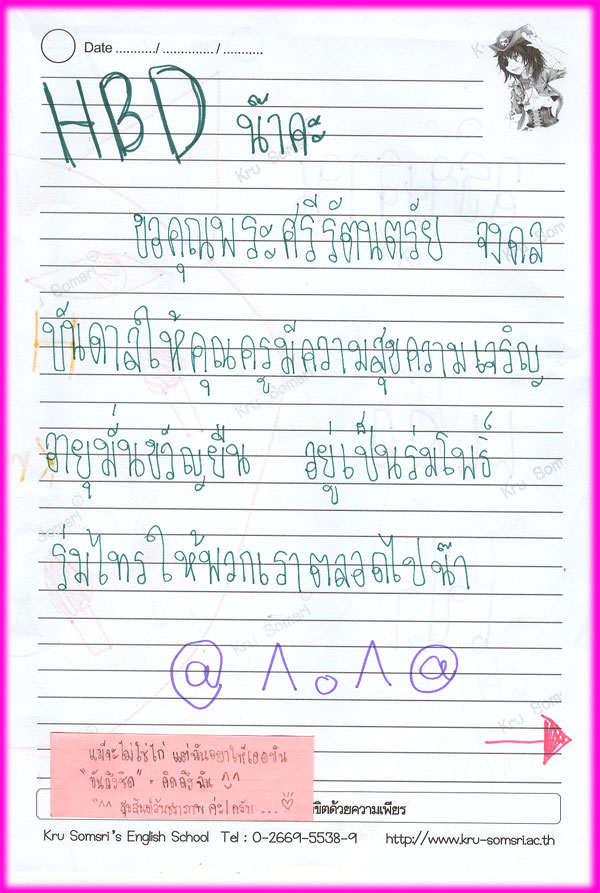 Date ........../............../...........
HBD น๊าคะ
ขอคุณพระศรีรัตนตรัย จงดล
บันดาลให้คุณครูมีความสุขความเจริญ
อายุมั่นขวัญยืน อยู่เป็นร่มโพธิ์
ร่มไทรให้พวกเราตลอดไปน๊า
@ ^ o ^ @
แม้จะไม่ใช่ไก่ แต่ฉันอยากให้เธอขัน
คิดถึงฉัน ^^
"^^ สุขสันต์วันชราภาพ ค่ะ/ครับ ... ♡
ขิตด้วยความเพียร
Kru Somsri's English School Tel : 0-2669-5538-9 http://www.kru-somsri.ac.th
Kru Somsri
Kru Somsri
Kru Somsri
Kru Somsri
Kru Somsri
Kru Somsri
Kru Somsri